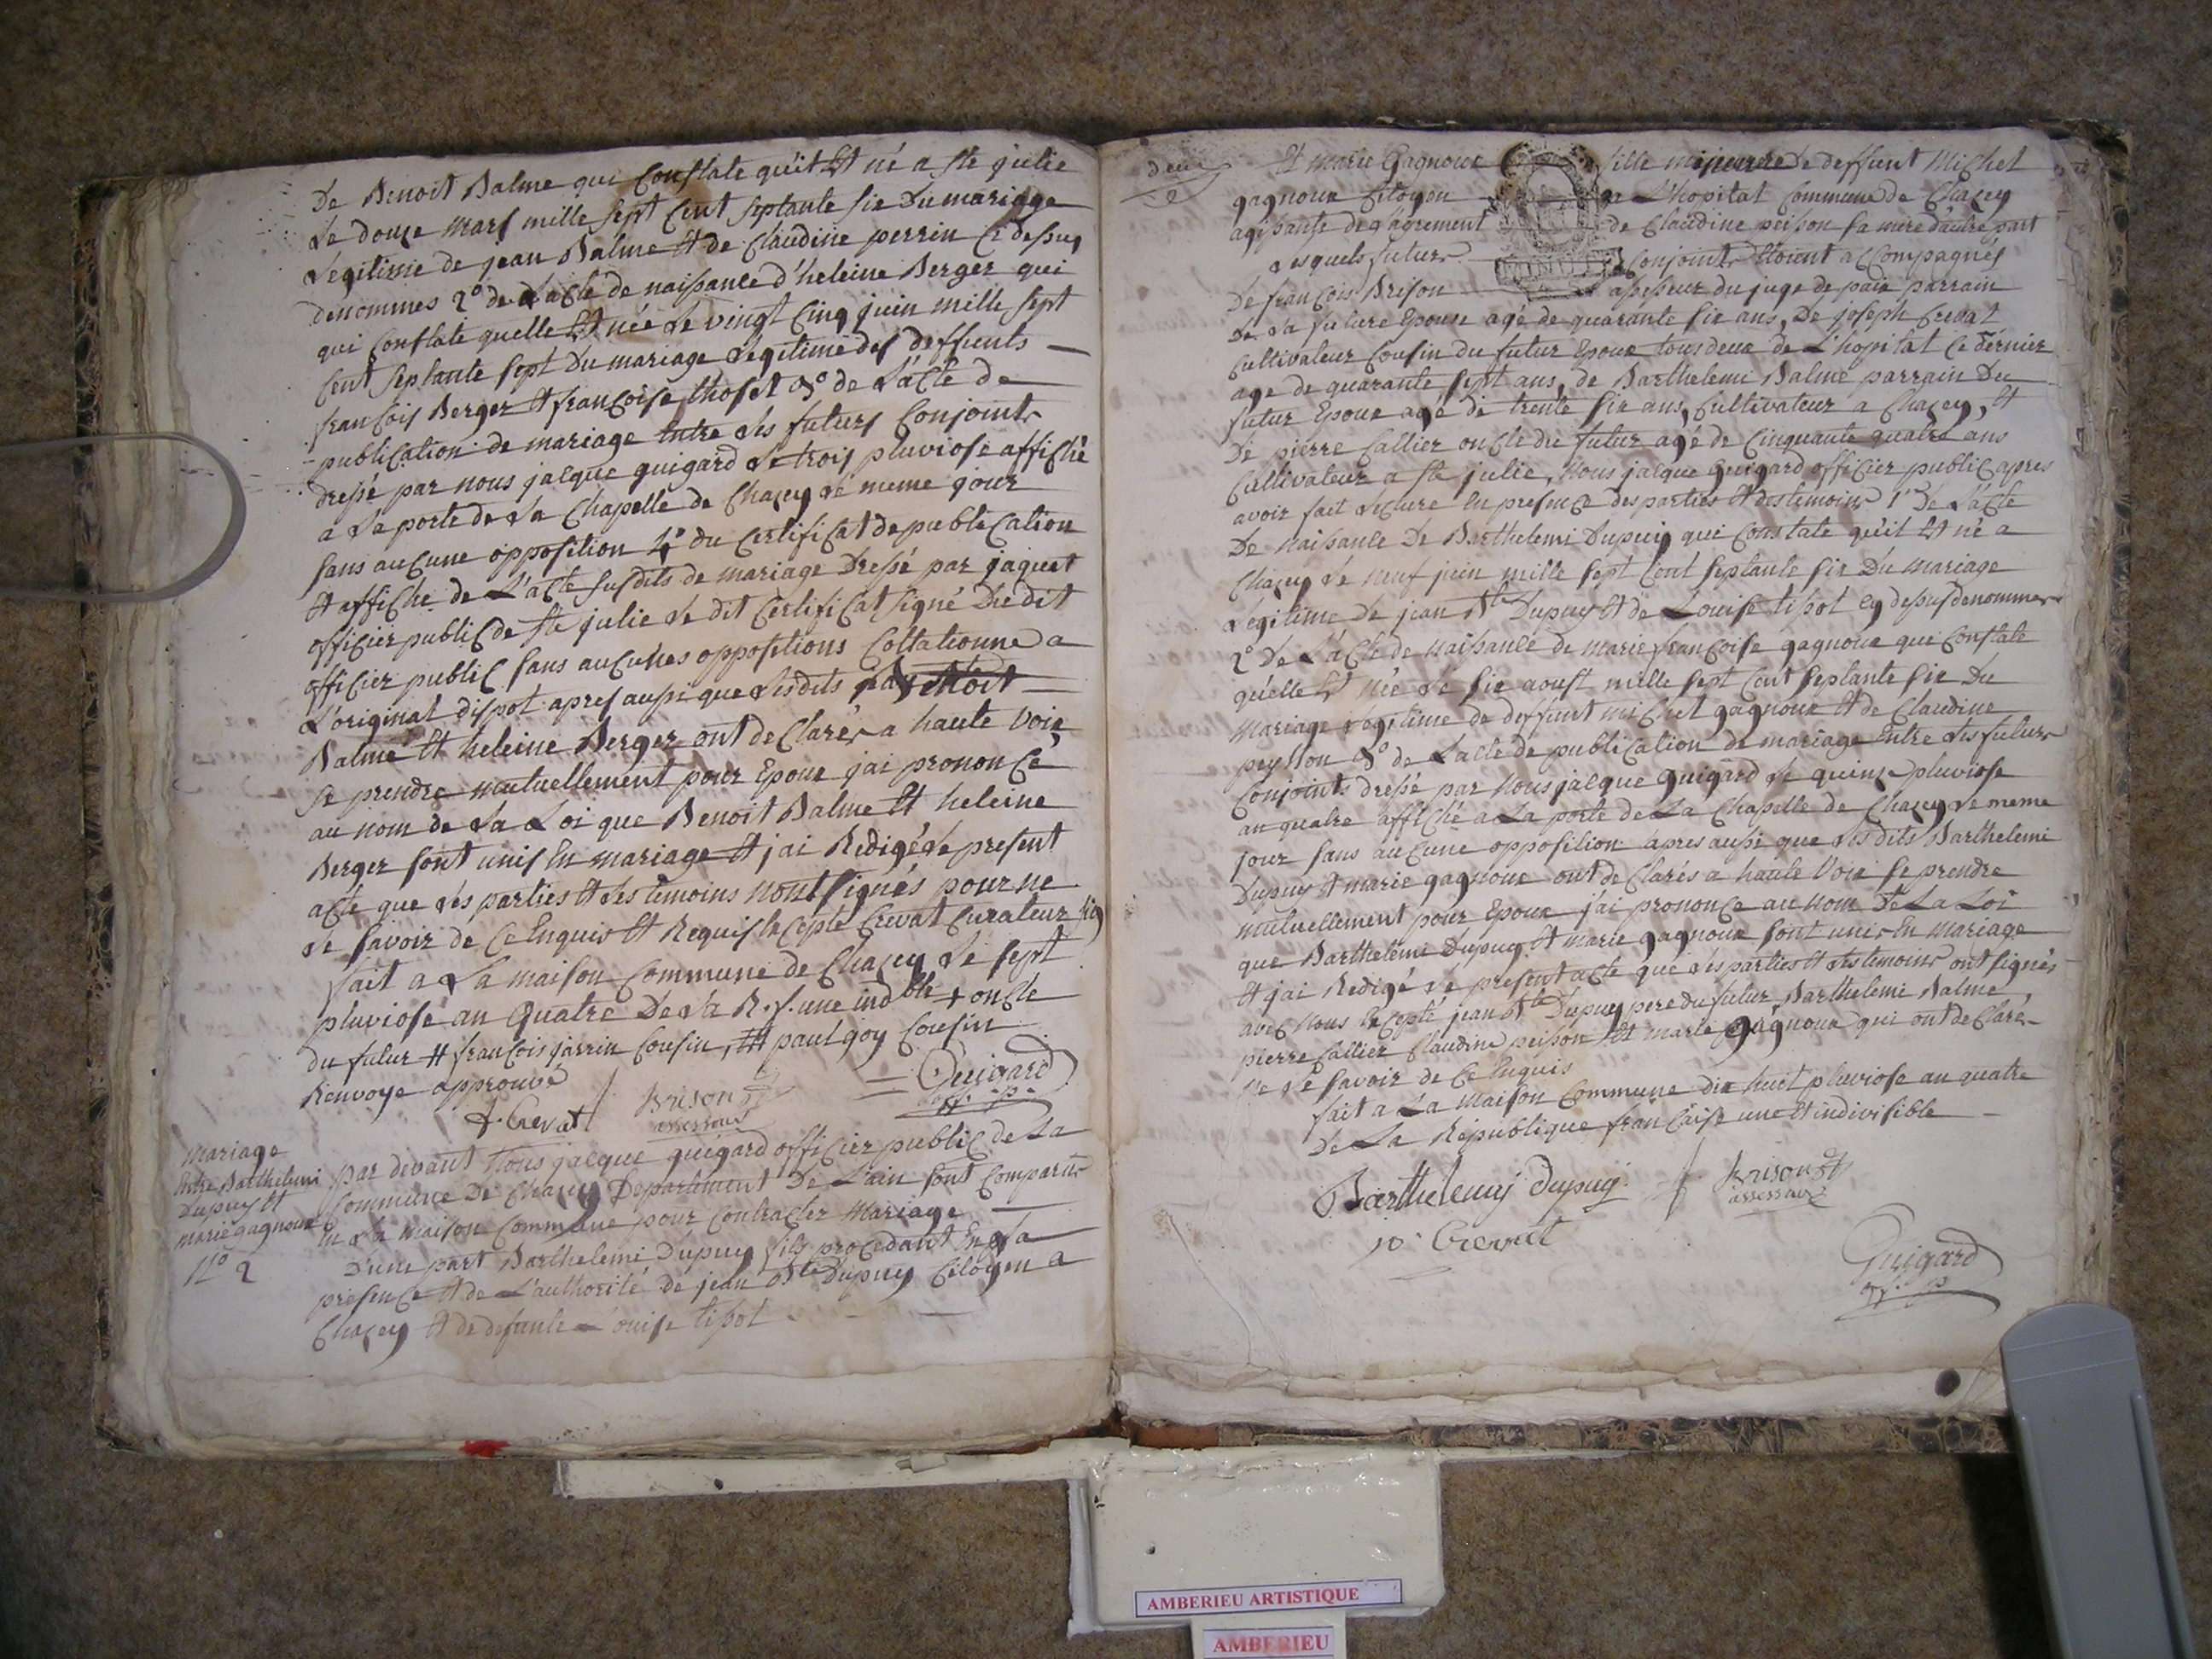 De Benoit Balme qui Constate qu'it Et né a ste julie
Le douze Mars mille sept Cent septante six Du mariage
Legitime de jean Balme et de Claudine perrin Ci dessus
denommes 2° de L'acte de naissance d'heleine Berger qui
qui Constate quelle Et née Le vingt Cinq juin mille sept
Cent septante sept Du mariage Legitime des deffunts
francois Berger et francoise thoset 3° de L'acte de
publication de mariage Entre Les futurs Conjoints
dressé par nous jacque guigard Le trois pluviose affiché
a La porte de La Chapelle de Chazey Le meme jour
sans aucune opposition 4° du Certificat de publication
et affiche de L'acte susdits de mariage Dressé par jaquet
officier public de ste julie Le dit Certificat signé Dudit
officier public sans aucunes oppositions Collationne a
L'original dispot apres aussi que Lesdits Benoit
Balme et heleine Berger ont declarés a haute Voix
se prendre mutuellement pour Epoux j'ai prononcé
au nom de La Loi que Benoit Balme et heleine
Berger sont unis En mariage et j'ai Redigé Le present
acte que Les parties et Les temoins n'ont signés pour ne
Le savoir de Ce Enquis et Requis Excepté Crevat Curateur
fait a La maison Commune de Chazey Le sept
pluviose an Quatre De La R.f. une indble + oncle
du futur # francois jarrin Cousin, ## paul goy Cousin
Renvoye approuvé
Guigard
off. p.
J. Crevat
Brison
assesseur
Mariage
Entre Barthelemi
Dupuy et
marie gagnoux
N° 2
par devant Nous jacque guigard officier public de La
Commune De Chazey Departement De L'ain sont Comparus
En La maison Commune pour Contracter Mariage
D'une part Barthelemi Dupuy fils procedant En La
presence et de L'authorité de jean Bte Dupuy Citoyen a
Chazey et de defunte Louise tissot
deux
2
Et marie Gagnoux fille mineure De deffunt Michel
gagnoux Citoyen a L'hopital Commune de Chazey
agissante de L'agrement de Claudine peisson sa mere d'autre part
Lesquels futurs Conjoints Etoient accompagnés
De francois Brison assesseur du juge de paix parrain
de La future Epouse agé de quarante six ans, De joseph Crevat
Cultivateur Cousin du futur Epoux tous deux de L'hopital Ce dernier
agé de quarante sept ans, de Barthelemi Balme parrain Du
futur Epoux agé de trente six ans, Cultivateur a Chazey, et
De pierre Callier oncle du futur agé de Cinquante quatre ans
Cultivateur a ste julie, Nous jacque Guigard officier public apres
avoir fait Lecture En presence des parties et des temoins 1° De L'acte
De Naissance De Barthelemi Dupuy qui Constate qu'it Et né a
Chazey Le neuf juin mille sept Cent septante six Du Mariage
Legitime De jean Bte Dupuy et de Louise tissot Cy dessus denommes
2° De L'acte de Naissance de Marie francoise gagnoux qui Constate
qu'elle Et née Le six aoust mille sept Cent septante six Du
Mariage Legitime de deffunt michel gagnoux et de Claudine
peysson 3° de L'acte de publication de mariage Entre Les futurs
Conjoints dressé par Nous jacque Guigard Le quinze pluviose
an quatre affiché a La porte de La Chapelle de Chazey Le meme
jour sans aucune opposition apres aussi que Lesdits Barthelemi
Dupuy et marie gagnoux ont declarés a haute Voix se prendre
mutuellement pour Epoux j'ai prononcé au nom De La Loi
que Barthelemi Dupuy et marie gagnoux sont unis En mariage
et j'ai Redigé Le present acte que Les parties et Les temoins ont signés
avec Nous Excepté jean Bte Dupuy pere du futur, Barthelemi Balme,
pierre Callier Claudine peisson et marie gagnoux qui ont declaré
ne Le savoir de Ce Enquis
fait a La maison Commune dix huit pluviose an quatre
De La Republique francaise une et indivisible
Barthelemy Dupuy
Brison
assesseur
Crevat
Guigard
off. p.
AMBERIEU ARTISTIQUE
AMBERIEU